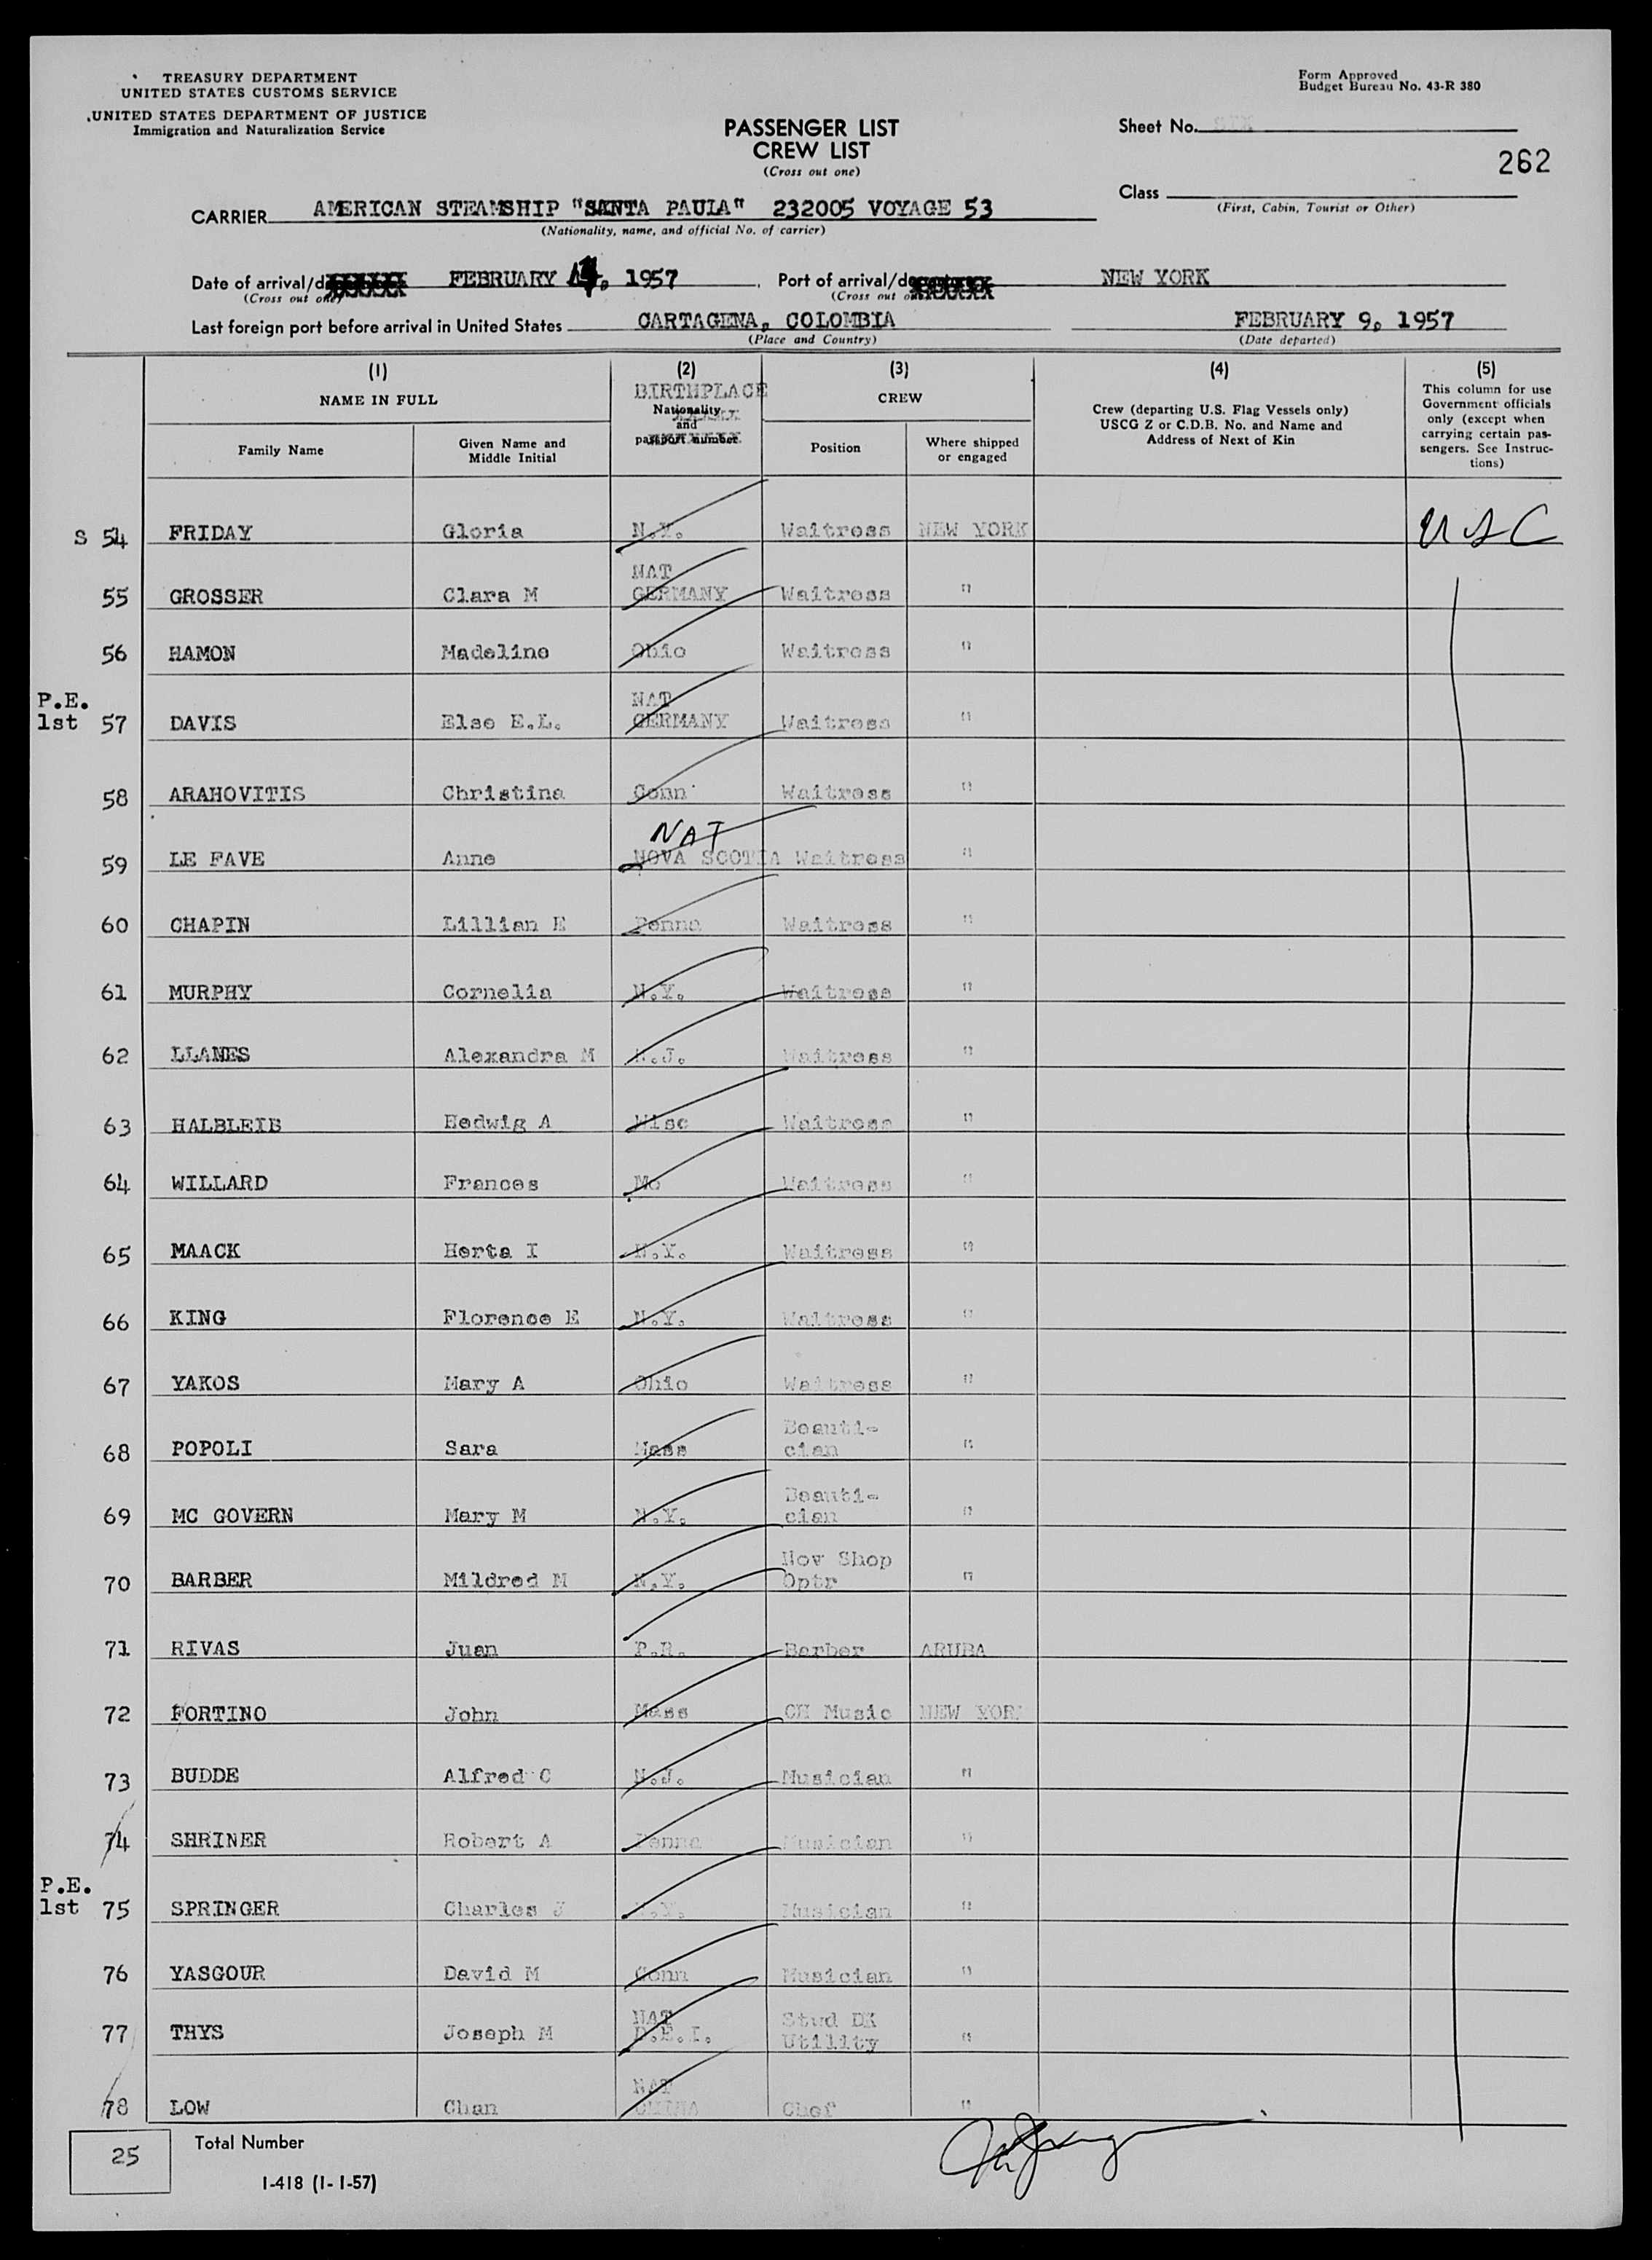 TREASURY DEPARTMENT
UNITED STATES CUSTOMS SERVICE
UNITED STATES DEPARTMENT OF JUSTICE
Immigration and Naturalization Service
Form Approved
Budget Bureau No. 43-R 380
PASSENGER LIST
CREW LIST
(Cross out one)
Sheet No. SIX
262
Class
(First, Cabin, Tourist or Other)
CARRIER AMERICAN STEAMSHIP "SANTA PAULA" 232005 VOYAGE 53
(Nationality, name, and official No. of carrier)
Date of arrival/d FEBRUARY 1957 Port of arrival/de NEW YORK
(Cross out one) (Cross out one)
Last foreign port before arrival in United States CARTAGENA, COLOMBIA FEBRUARY 9, 1957
(Place and Country) (Date departed)
(1) (2) (3) (4) (5)
NAME IN FULL BIRTHPLACE Nationality and passport number. CREW
Crew (departing U.S. Flag Vessels only)
USCG Z or C.D.B. No. and Name and
Address of Next of Kin
This column for use
Government officials
only (except when
carrying certain pas-
sengers. See Instruc-
tions)
Family Name Given Name and Middle Initial Position Where shipped or engaged
S 54 FRIDAY Gloria N.Y. Waitress NEW YORK USC
55 GROSSER Clara M NAT GERMANY Waitress "
56 HAMON Madeline Ohio Waitress "
P.E.
1st 57 DAVIS Else E.L. NAT GERMANY Waitress "
58 ARAHOVITIS Christina Conn Waitress "
59 LE FAVE Anne NAT NOVA SCOTIA Waitress "
60 CHAPIN Lillian E Penna Waitress "
61 MURPHY Cornelia N.Y. Waitress "
62 LLANES Alexandra M N.J. Waitress "
63 HALBLEIB Hedwig A Wisc Waitress "
64 WILLARD Frances Mo Waitress "
65 MAACK Herta I N.Y. Waitress "
66 KING Florence E N.Y. Waitress "
67 YAKOS Mary A Ohio Waitress "
68 POPOLI Sara Mass Beauti-
cian "
69 MC GOVERN Mary M N.Y. Beauti-
cian "
70 BARBER Mildred M N.Y. Nov Shop
Optr "
71 RIVAS Juan P.R. Barber ARUBA
72 FORTINO John Mass CH Music NEW YORK
73 BUDDE Alfred C N.J. Musician "
74 SHRINER Robert A Penna Musician "
P.E.
1st 75 SPRINGER Charles J N.Y. Musician "
76 YASGOUR David M Conn Musician "
77 THYS Joseph M NAT D.E.I. Stud DK
Utility "
78 LOW Chan NAT CHINA Chef "
25 Total Number
I-418 (1-1-57)